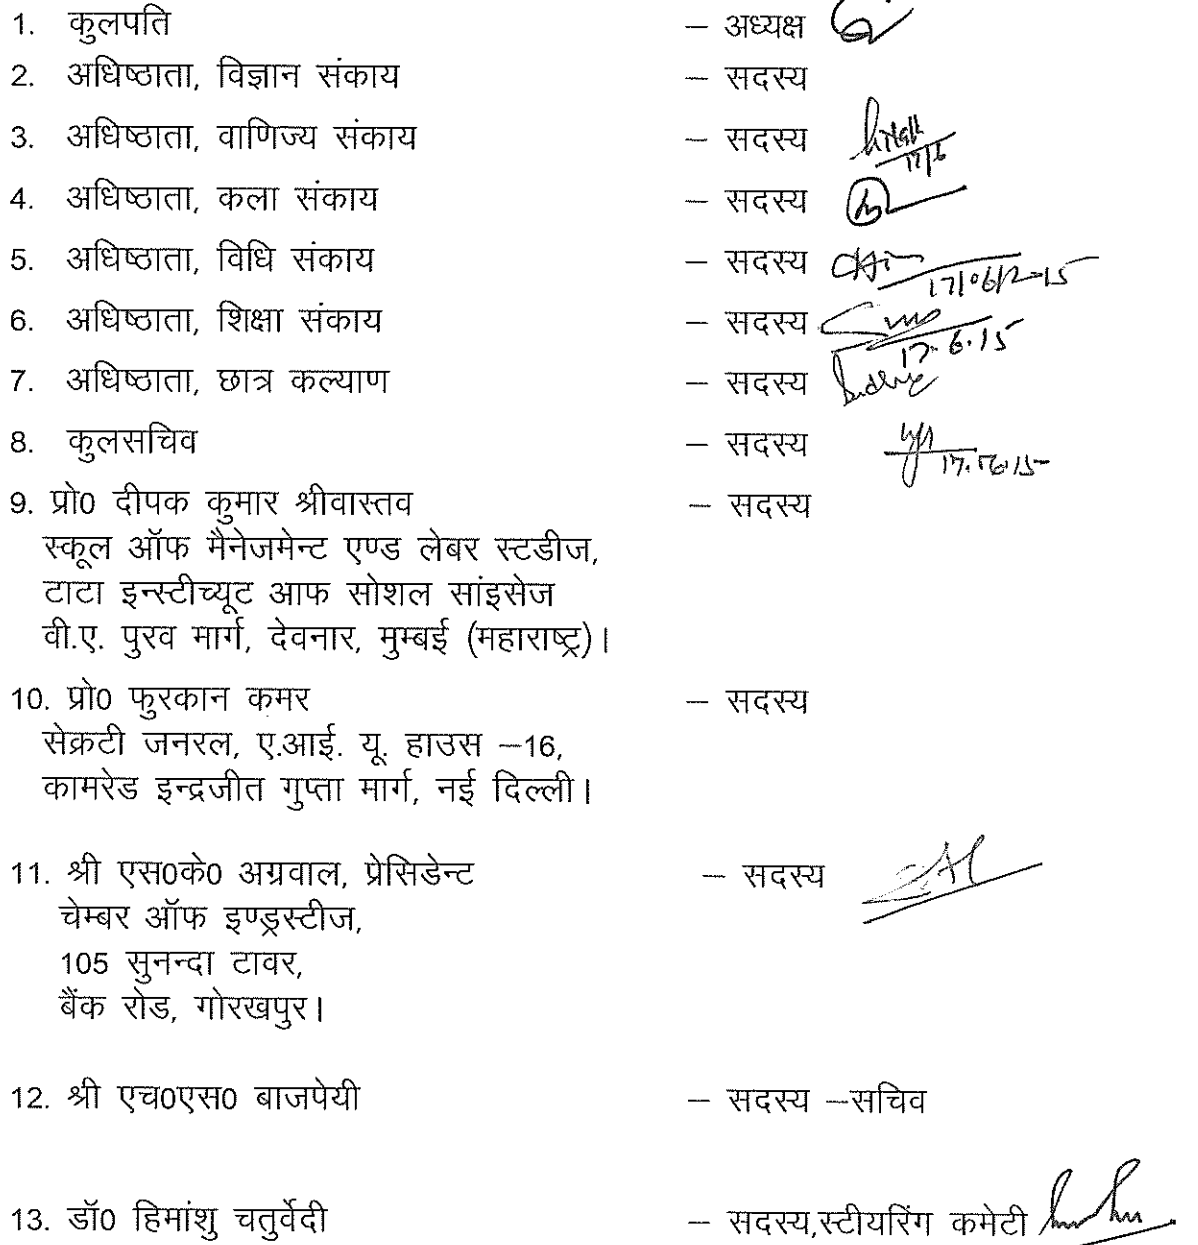 1. कुलपति – अध्यक्ष
2. अधिष्ठाता, विज्ञान संकाय – सदस्य
3. अधिष्ठाता, वाणिज्य संकाय – सदस्य
4. अधिष्ठाता, कला संकाय – सदस्य
5. अधिष्ठाता, विधि संकाय – सदस्य 17/06/2015
6. अधिष्ठाता, शिक्षा संकाय – सदस्य 17.6.15
7. अधिष्ठाता, छात्र कल्याण – सदस्य
8. कुलसचिव – सदस्य
9. प्रो0 दीपक कुमार श्रीवास्तव – सदस्य
स्कूल ऑफ मैनेजमेन्ट एण्ड लेबर स्टडीज,
टाटा इन्स्टीच्यूट आफ सोशल सांइसेज
वी.ए. पुरव मार्ग, देवनार, मुम्बई (महाराष्ट्र)।
10. प्रो0 फुरकान कमर – सदस्य
सेक्रटी जनरल, ए.आई. यू. हाउस –16,
कामरेड इन्द्रजीत गुप्ता मार्ग, नई दिल्ली।
11. श्री एस0के0 अग्रवाल, प्रेसिडेन्ट – सदस्य
चेम्बर ऑफ इण्ड्रस्टीज,
105 सुनन्दा टावर,
बैंक रोड, गोरखपुर।
12. श्री एच0एस0 बाजपेयी – सदस्य –सचिव
13. डॉ0 हिमांशु चतुर्वेदी – सदस्य,स्टीयरिंग कमेटी